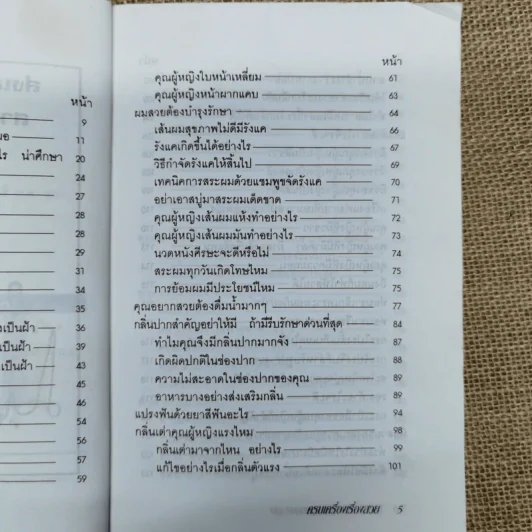 หน้า
9
11
ไร น่าศึกษา 20
24
27
28
28
29
31
34
35
งเป็นฝ้า 36
เป็นฝ้า 39
เป็นฝ้า 39
45
46
54
56
57
59
หน้า
คุณผู้หญิงใบหน้าเหลี่ยม 61
คุณผู้หญิงหน้าผากแคบ 63
ผมสวยต้องบำรุงรักษา 64
เส้นผมสุขภาพไม่ดีมีรังแค 66
รังแคเกิดขึ้นได้อย่างไร 67
วิธีกำจัดรังแคให้สิ้นไป 69
เทคนิคการสระผมด้วยแชมพูขจัดรังแค 70
อย่าเอาสบู่มาสระผมเด็ดขาด 71
คุณผู้หญิงเส้นผมแห้งทำอย่างไร 72
คุณผู้หญิงเส้นผมมันทำอย่างไร 73
นวดหนังศีรษะจะดีหรือไม่ 74
สระผมทุกวันเกิดโทษไหม 75
การย้อมผมมีประโยชน์ไหม 75
คุณอยากสวยต้องดื่มน้ำมากๆ 77
กลิ่นปากสำคัญอย่าให้มี ถ้ามีรีบรักษาด่วนที่สุด 84
ทำไมคุณจึงมีกลิ่นปากมากจัง 87
เกิดผิดปกติในช่องปาก 88
ความไม่สะอาดในช่องปากของคุณ 89
อาหารบางอย่างส่งเสริมกลิ่น 89
แปรงฟันด้วยยาสีฟันอะไร 94
กลิ่นเต่าคุณผู้หญิงแรงไหม 98
กลิ่นเต่ามาจากไหน อย่างไร 99
แก้ไขอย่างไรเมื่อกลิ่นตัวแรง 101
ครบเครื่องเรื่องสวย 5